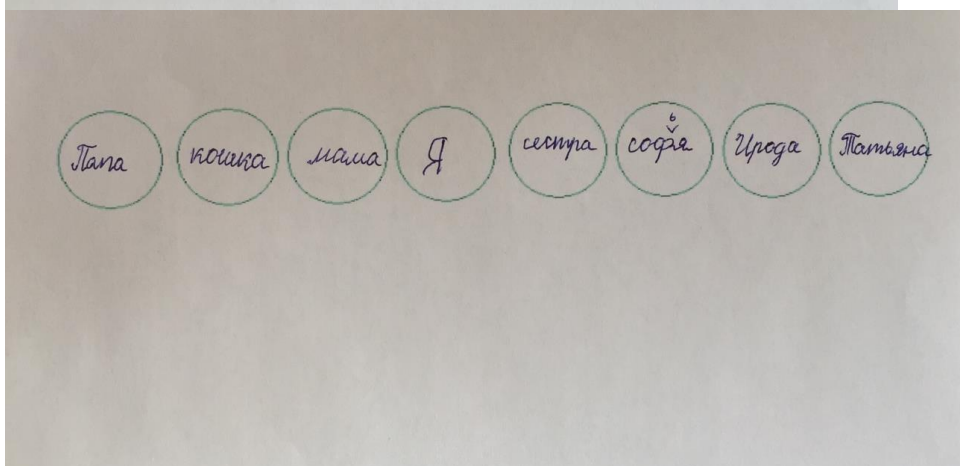 Папа кошка мама Я сестра софья Ирода Татьяна